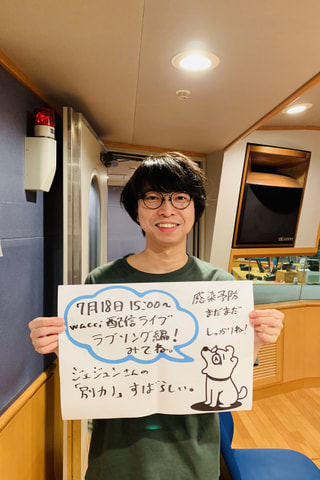 7月18日 15:00〜
wacci 配信ライブ
ラブソング編!
みてね。
感染予防
まだまだ
しっかりね!
ジェジュンさんの
「別カノ」すばらしい。